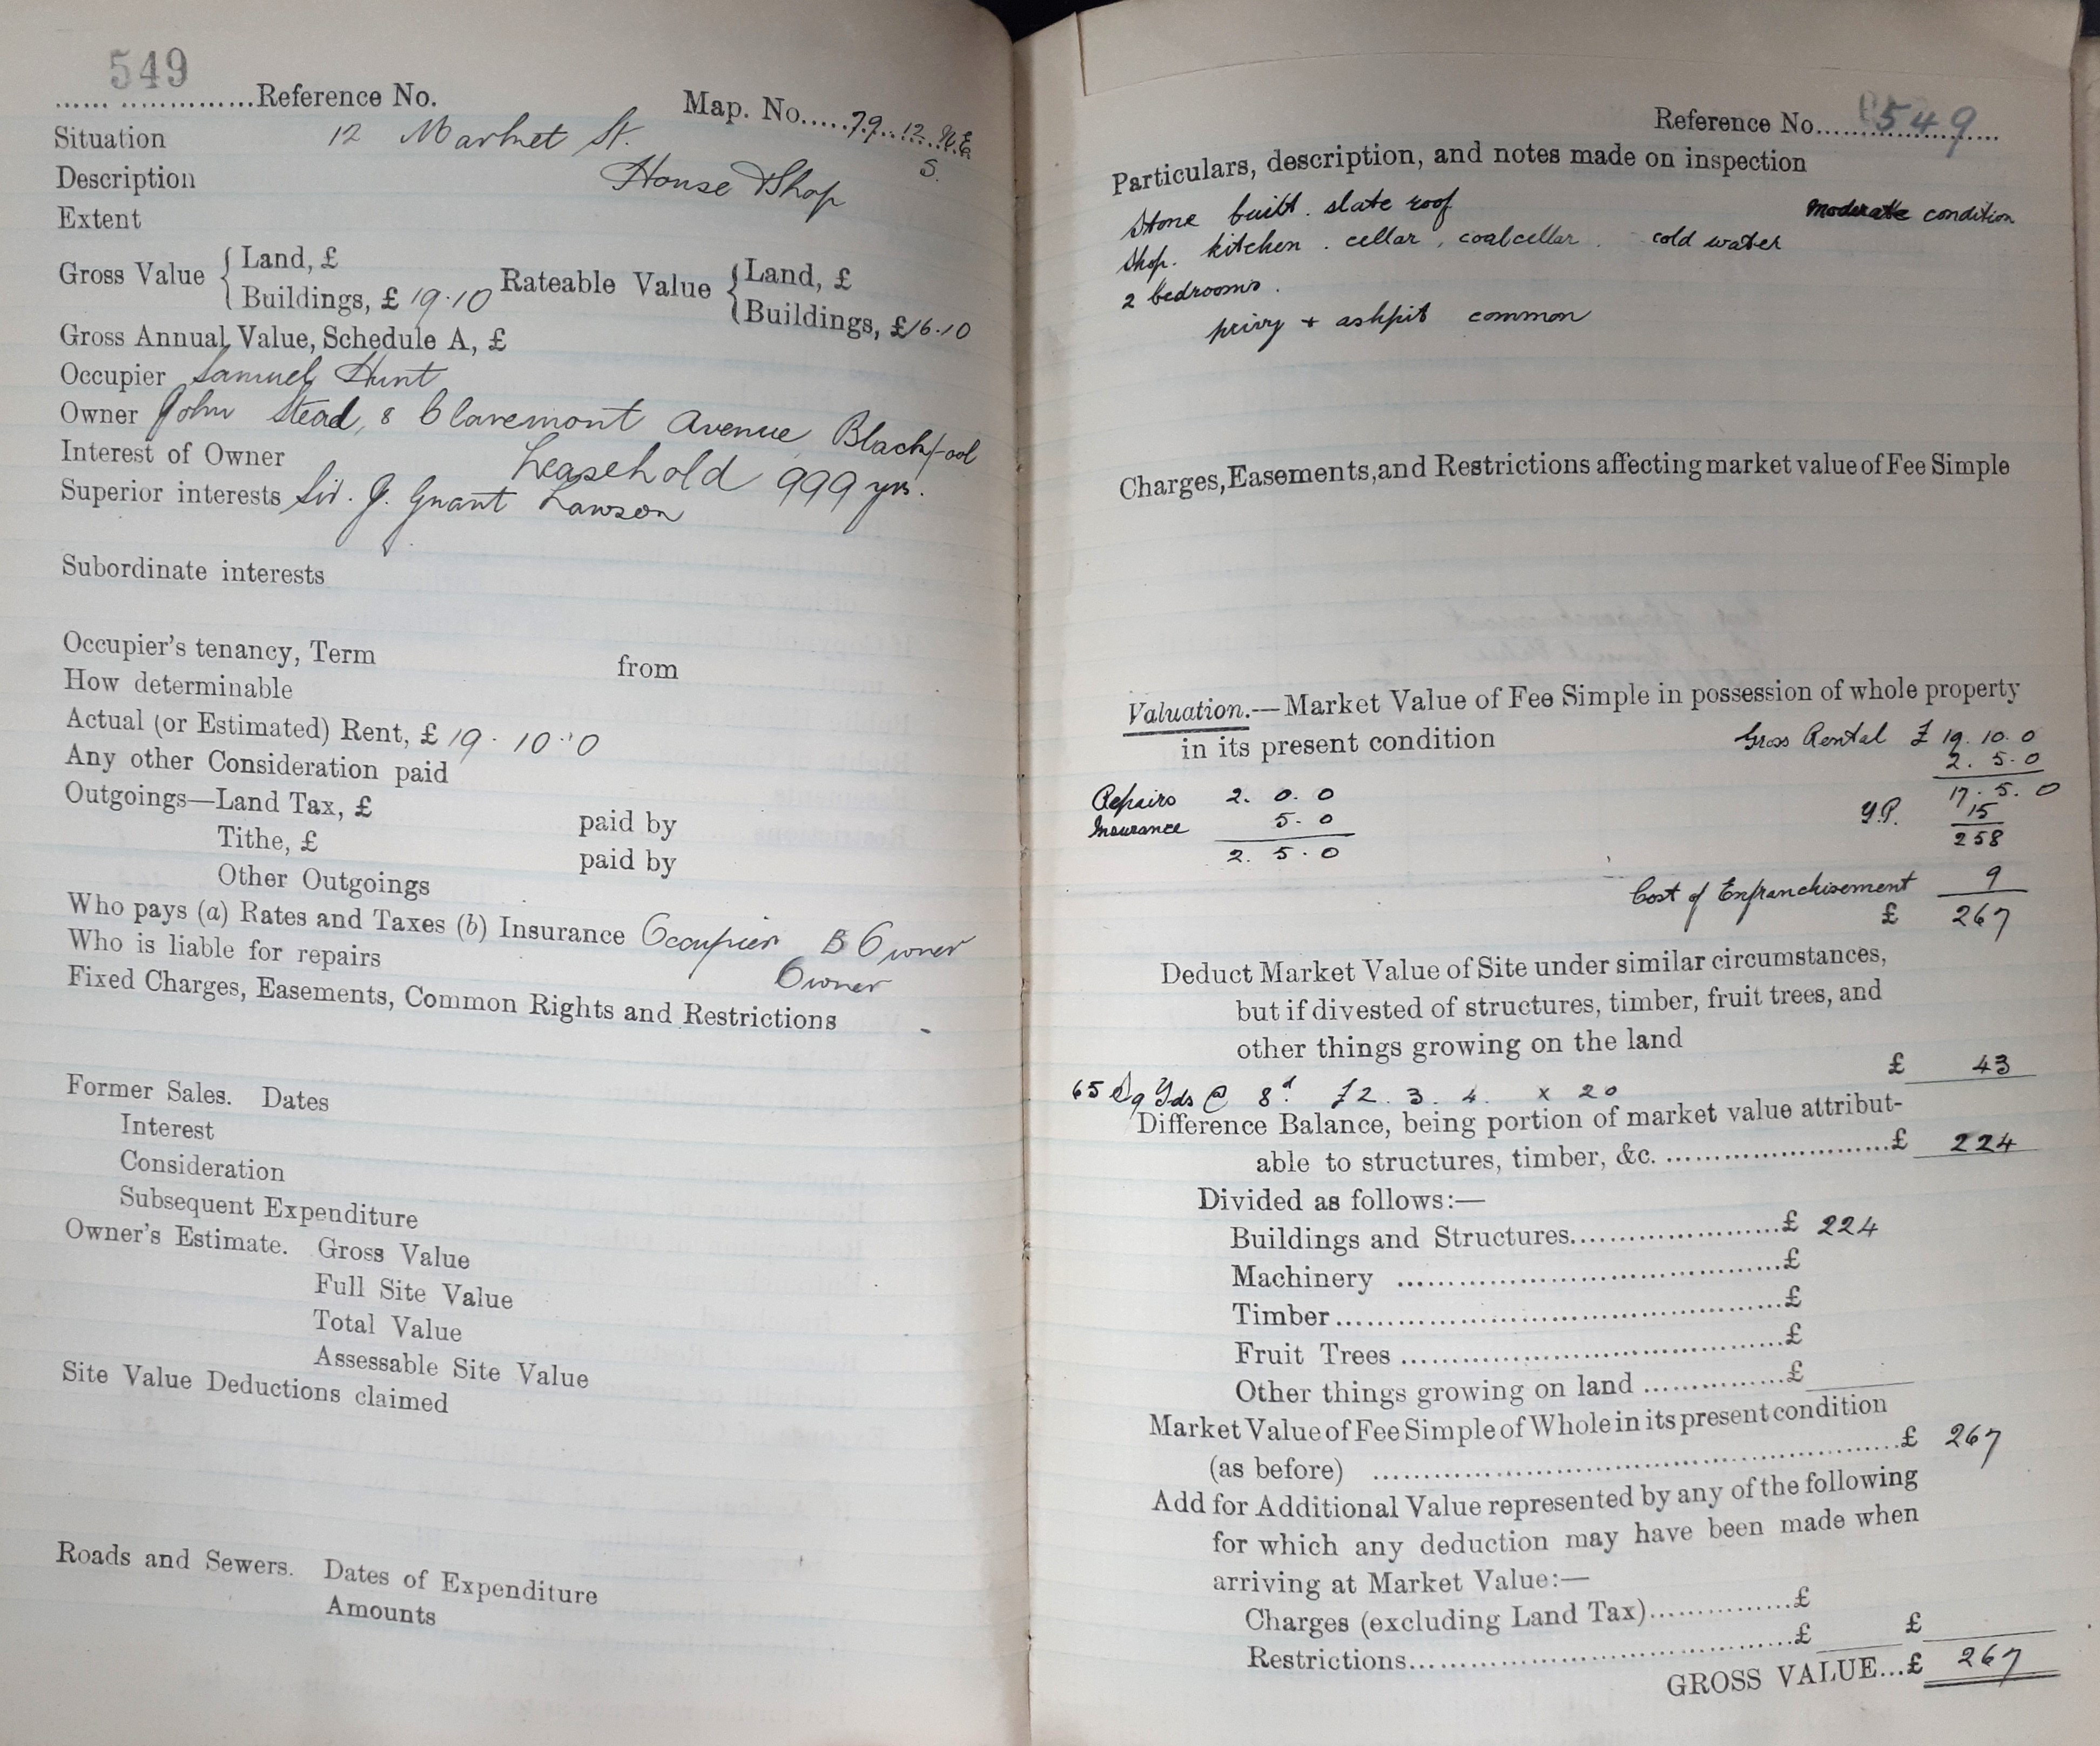 549
...... ..............Reference No.
Map. No.....79..12. N.E
S.
Situation 12 Market St.
Description House & Shop
Extent
Gross Value { Land, £
Buildings, £ 19.10
Rateable Value { Land, £
Buildings, £16.10
Gross Annual Value, Schedule A, £
Occupier Samuel Hunt
Owner John Stead, 8 Claremont Avenue, Blackpool
Interest of Owner Leasehold 999 yrs.
Superior interests Sir. J. Grant Lawson
Subordinate interests
Occupier's tenancy, Term from
How determinable
Actual (or Estimated) Rent, £ 19 . 10 . 0
Any other Consideration paid
Outgoings—Land Tax, £ paid by
Tithe, £ paid by
Other Outgoings
Who pays (a) Rates and Taxes (b) Insurance Occupier B Owner
Who is liable for repairs Owner
Fixed Charges, Easements, Common Rights and Restrictions -
Former Sales. Dates
Interest
Consideration
Subsequent Expenditure
Owner's Estimate. Gross Value
Full Site Value
Total Value
Assessable Site Value
Site Value Deductions claimed
Roads and Sewers. Dates of Expenditure
Amounts
Reference No.....549...
Particulars, description, and notes made on inspection
Stone built. slate roof moderate condition
Shop. kitchen . cellar , coalcellar . cold water
2 bedrooms .
privy + ashpit common
Charges, Easements, and Restrictions affecting market value of Fee Simple
Valuation.—Market Value of Fee Simple in possession of whole property
in its present condition Gross Rental £ 19. 10. 0
2. 5. 0
Repairs 2. 0. 0 17. 5. 0
Insurance 5. 0 Y.P. 15
2. 5. 0 258
Cost of Enfranchisement 9
£ 267
Deduct Market Value of Site under similar circumstances,
but if divested of structures, timber, fruit trees, and
other things growing on the land
£ 43
65 Sq Yds @ 8d £2. 3. 4. x 20
Difference Balance, being portion of market value attribut-
able to structures, timber, &c. ........................£ 224
Divided as follows:—
Buildings and Structures.......................£ 224
Machinery ..........................................£
Timber.................................................£
Fruit Trees ..........................................£
Other things growing on land ...............£
Market Value of Fee Simple of Whole in its present condition
(as before) .........................................................£ 267
Add for Additional Value represented by any of the following
for which any deduction may have been made when
arriving at Market Value:—
Charges (excluding Land Tax)...............£
Restrictions..........................................£ £
GROSS VALUE...£ 267